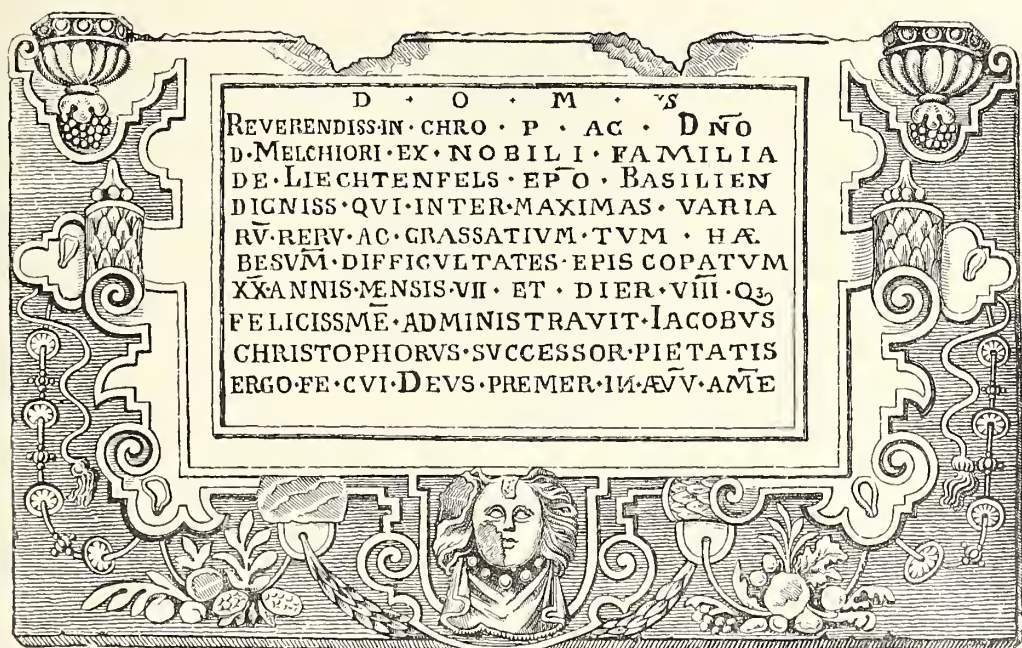 D · O · M · S
REVERENDISS·IN · CHRO · P · AC · D N̄O
D·MELCHIORI·EX·NOBILI·FAMILIA
DE·LIECHTENFELS·EP̄O·BASILIEN
DIGNISS·QVI·INTER·MAXIMAS·VARIA
RV̄·RERV·AC·GRASSATIVM·TVM·HÆ
BESVM̄·DIFFICVLTATES·EPISCOPATVM
X̄X·ANNIS·MENSIS·VII·ET·DIER·VIII·Qꝫ
FELICISSMĒ·ADMINISTRAVIT·IACOBVS
CHRISTOPHORVS·SVCCESSOR·PIETATIS
ERGO·FE·CVI·DEVS·PREMER·IN·ÆVV̄·AM̄E